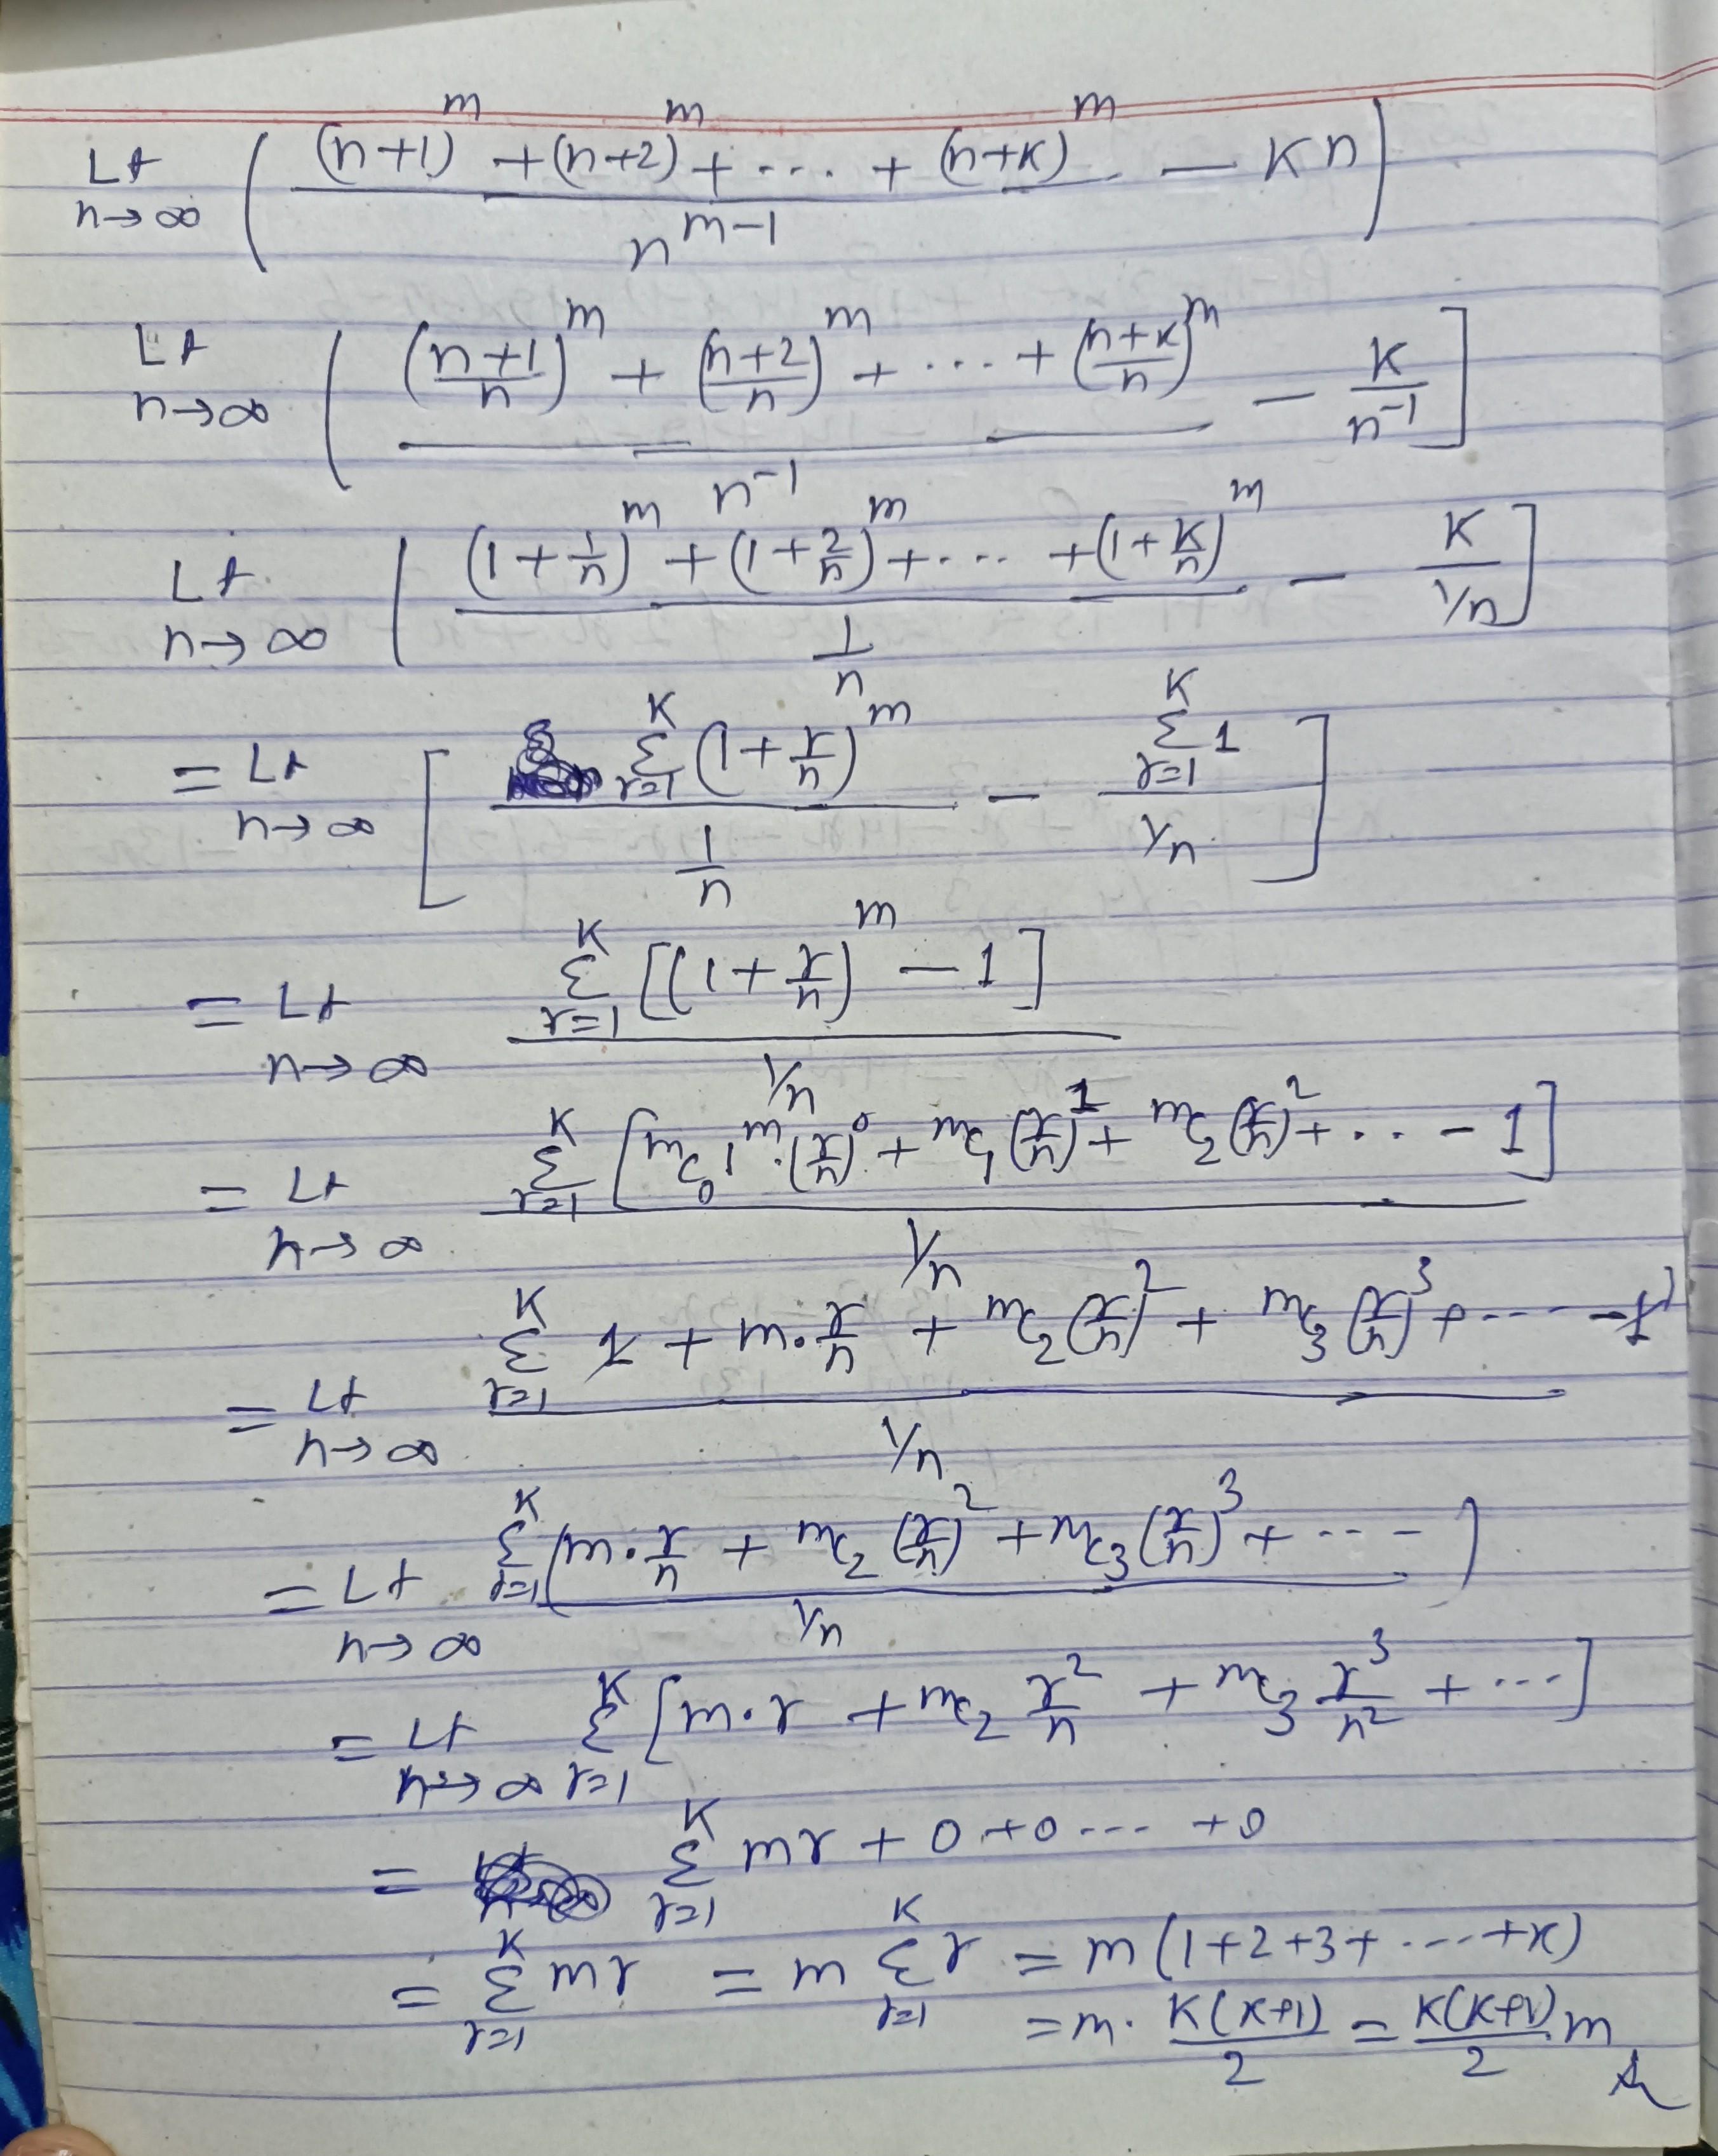 Lt n→∞ ( ((n+1)^m + (n+2)^m + ... + (n+K)^m) / n^(m-1) - Kn )
Lt n→∞ ( (((n+1)/n)^m + ((n+2)/n)^m + ... + ((n+K)/n)^m) / n^(-1) - K/n^(-1) ]
Lt n→∞ [ ((1+1/n)^m + (1+2/n)^m + ... + (1+K/n)^m) / (1/n) - K/(1/n) ]
= Lt n→∞ [ (Σ_{r=1}^{K} (1+r/n)^m) / (1/n) - (Σ_{r=1}^{K} 1) / (1/n) ]
= Lt n→∞ (Σ_{r=1}^{K} [(1+r/n)^m - 1]) / (1/n)
= Lt n→∞ (Σ_{r=1}^{K} [mC0 1^m·(r/n)^0 + mC1 (r/n)^1 + mC2 (r/n)^2 + ... - 1]) / (1/n)
= Lt n→∞ (Σ_{r=1}^{K} 1 + m·r/n + mC2 (r/n)^2 + mC3 (r/n)^3 + ... - 1) / (1/n)
= Lt n→∞ (Σ_{r=1}^{K} (m·r/n + mC2 (r/n)^2 + mC3 (r/n)^3 + ...)) / (1/n)
= Lt n→∞ Σ_{r=1}^{K} [m·r + mC2 r^2/n + mC3 r^3/n^2 + ...]
= Σ_{r=1}^{K} mr + 0 + 0 ... + 0
= Σ_{r=1}^{K} mr = m Σ_{r=1}^{K} r = m(1+2+3+...+K)
= m· K(K+1)/2 = K(K+1)/2 m